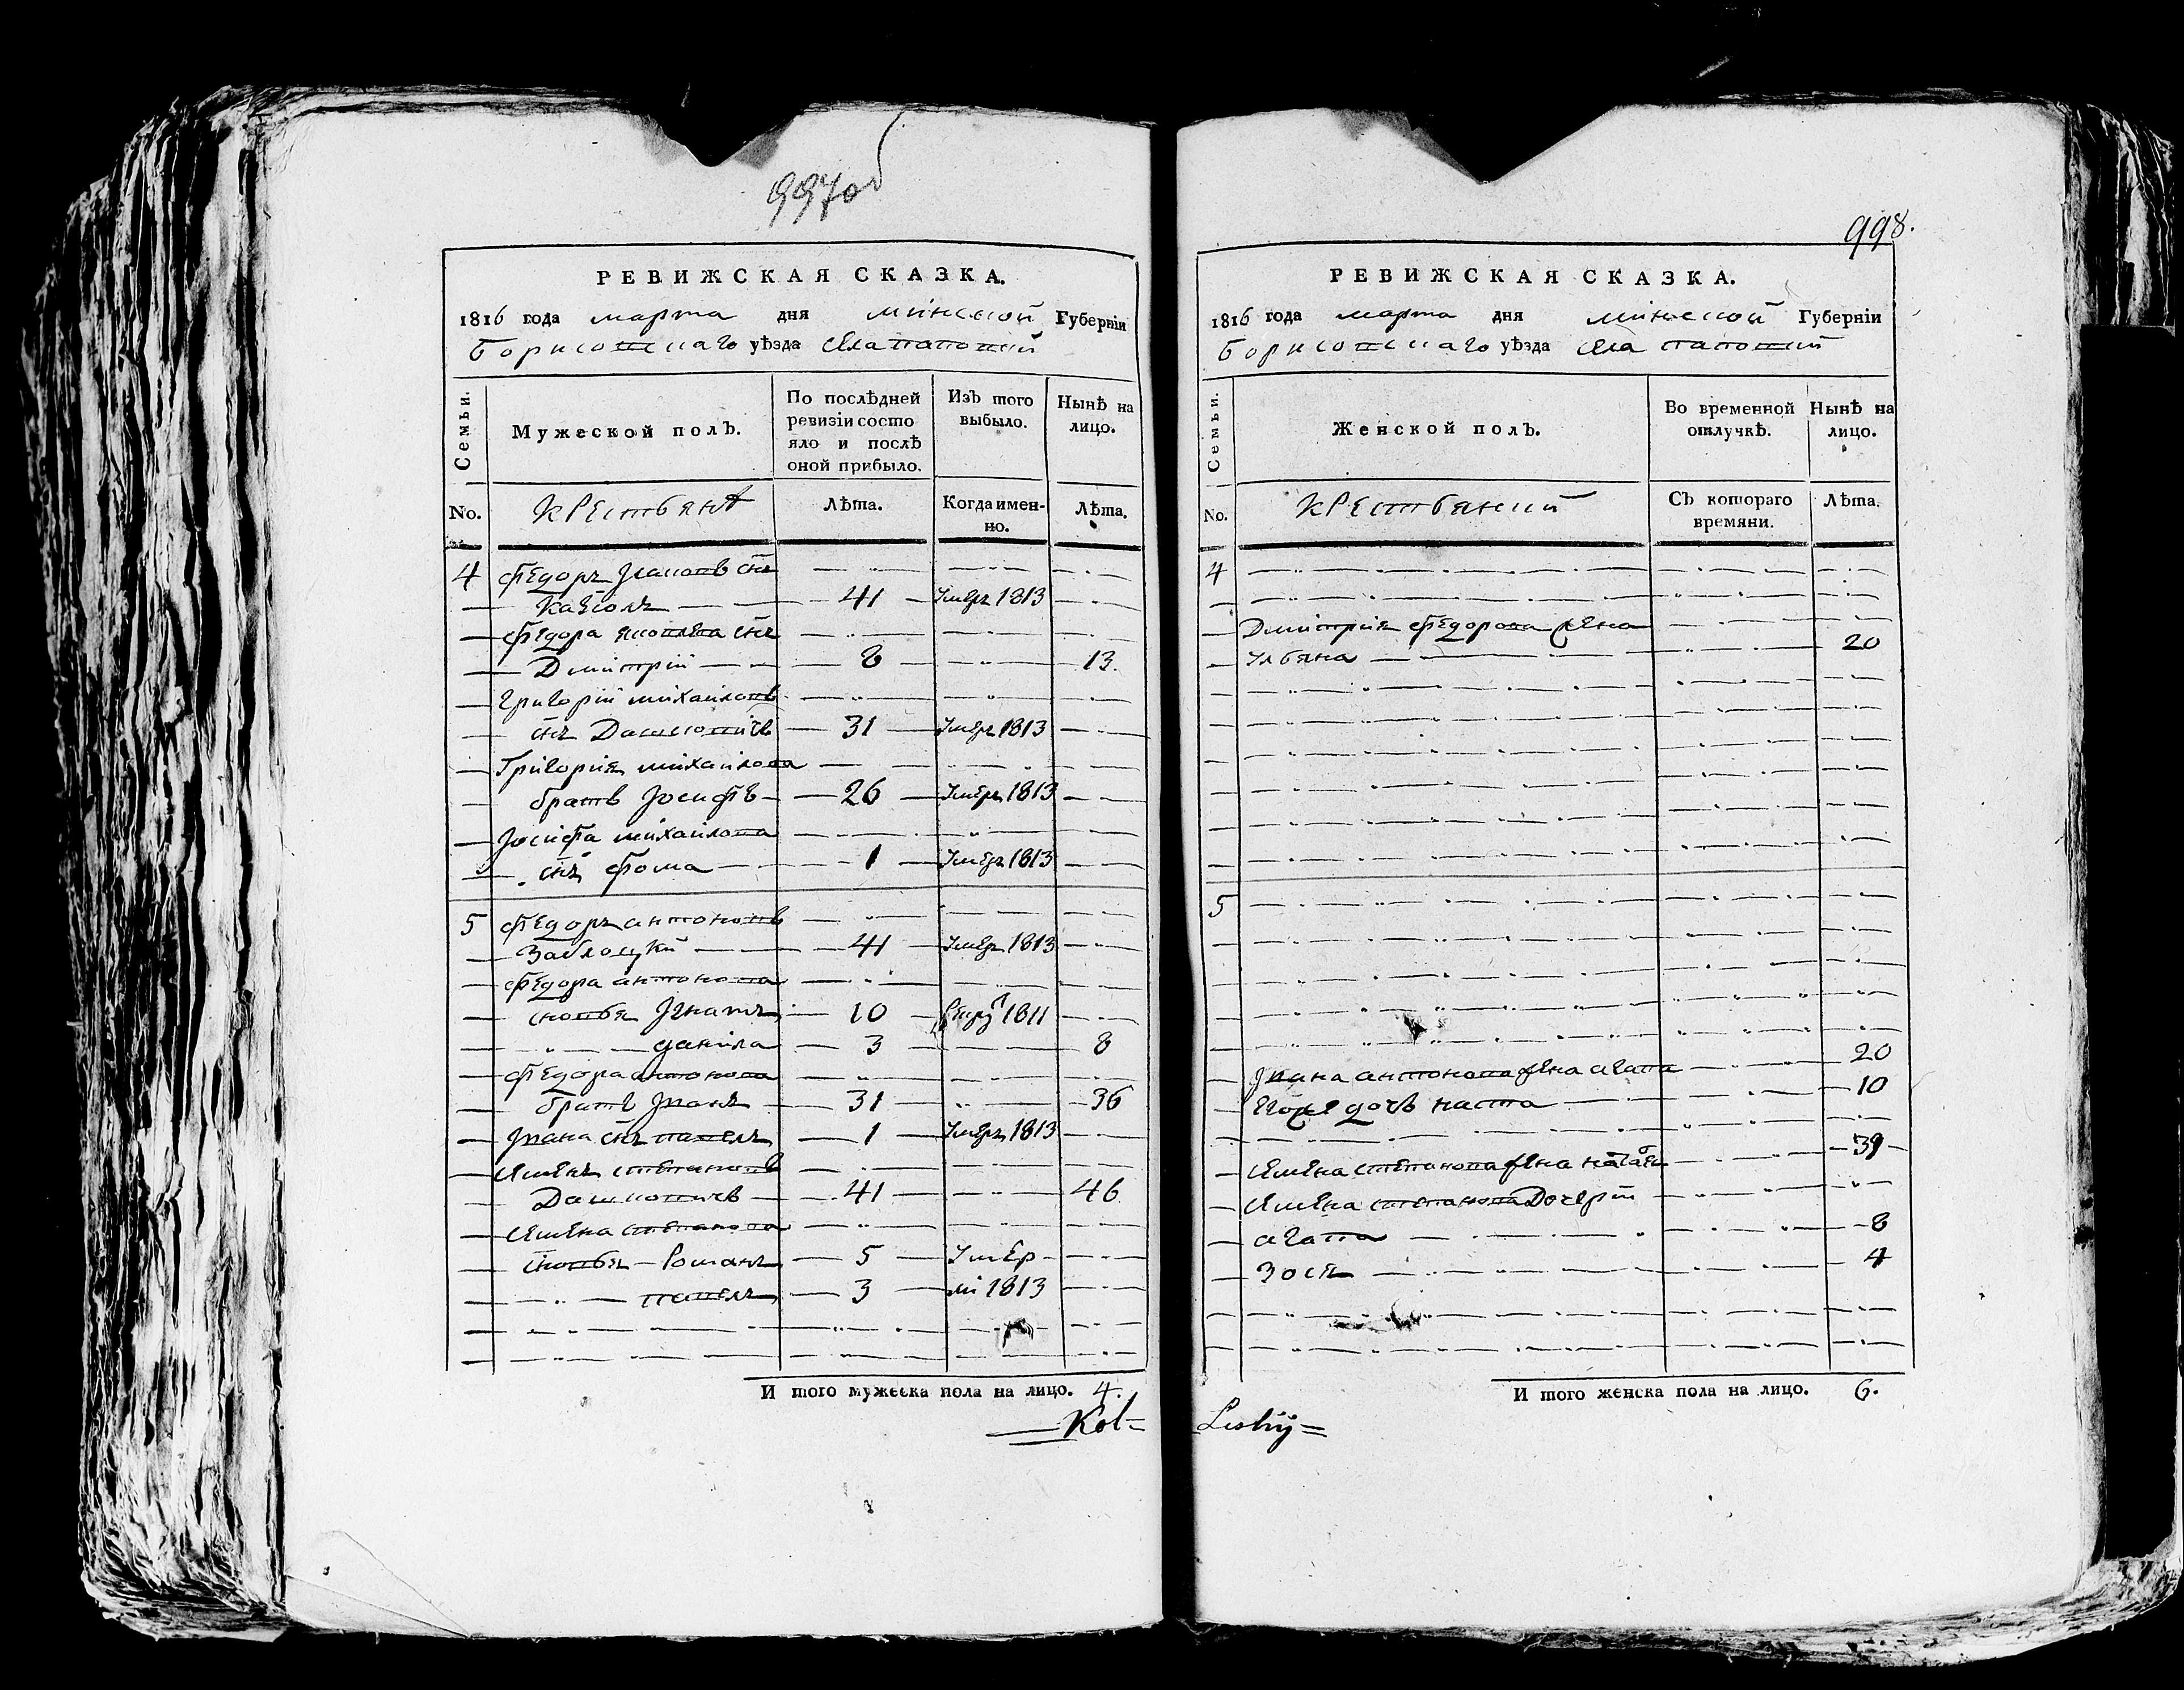 997об
РЕВИЖСКАЯ СКАЗКА.
1816 года марта дня минской Губерніи
Борисовскаго уѣзда
Семьи.
Мужеской полъ.
По послѣдней ревизіи состояло и послѣ оной прибыло.
Изъ того выбыло.
Нынѣ на лицо.
No.
крестьянѣ
Лѣта.
Когда именно.
Лѣта.
4 Федоръ снъ
41 Умеръ 1813
Федора снъ
Дмитрій 8 13.
Григорій михайловъ
снъ Дашковичъ 31 Умеръ 1813
Григорія михайлова
братъ Іосифъ 26 Умеръ 1813
Іосифа михайлова
снъ Фома 1 Умеръ 1813
5 Федоръ антоновъ
Заблоцкий 41 Умеръ 1813
Федора антонова
сновья Игнатъ 10 1811
данила 3 8
Федора антонова
братъ Иванъ 31 36
Ивана снъ павелъ 1 Умеръ 1813
Семенъ степановъ
Дашковичъ 41 46
Семена степанова
сновья Романъ 5 Умер
павелъ 3 ли 1813
И того мужеска пола на лицо. 4.
Kot=
998.
РЕВИЖСКАЯ СКАЗКА.
1816 года марта дня минской Губерніи
Борисовскаго уѣзда
Семьи.
Женской полъ.
Во временной отлучкѣ.
Нынѣ на лицо.
No.
крестьянки
Съ котораго времяни.
Лѣта.
4
Дмитрія Федорова жена
Ульяна 20
5
Ивана антонова жена агата 20
Егоже дочь наста 10
Семена степанова жена 39
Семена степанова Дочери
агата 8
Зося 4
И того женска пола на лицо. 6.